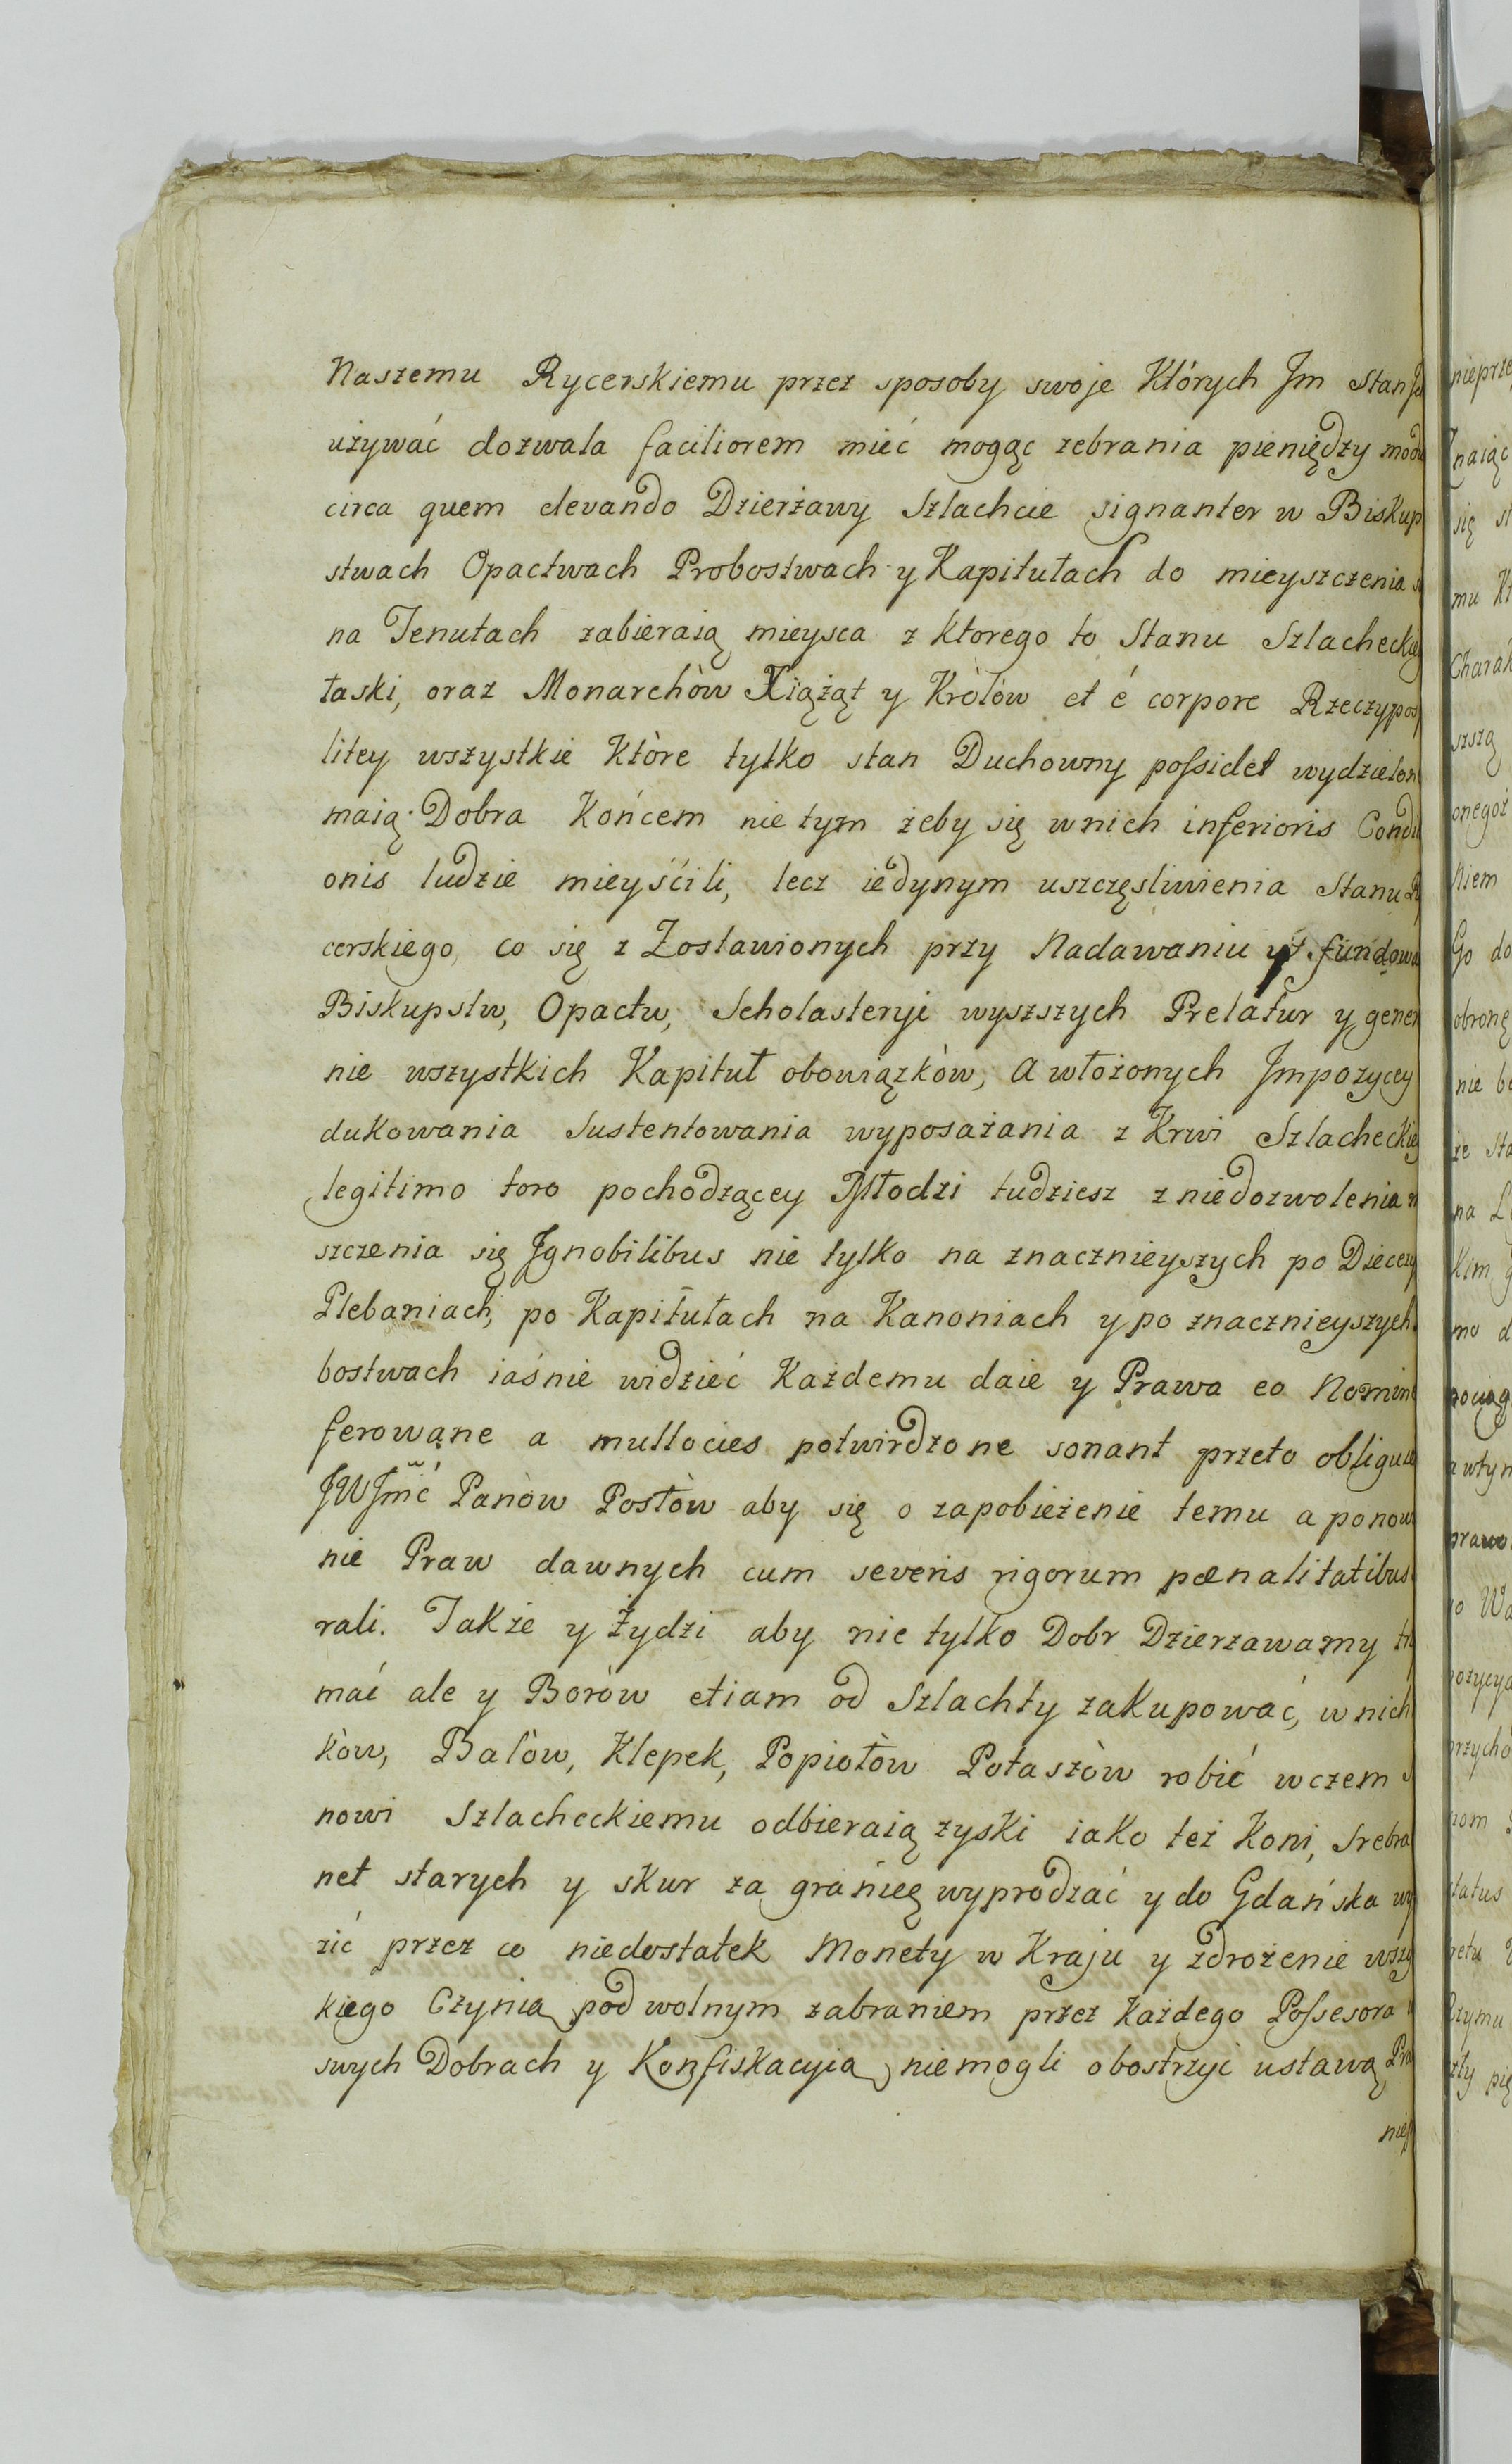 Naszemu Rycerskiemu przez sposoby swoje Których Jm Stan
używać dozwala faciliorem mieć mogąc zebrania pieniędzy mod
circa quem elevando Dzierżawy Szlachcie signanter w Biskup
stwach Opactwach Probostwach y Kapitułach do mieyszczenia
na Tenutach zabieraią mieysca z Ktorego to Stanu Szlachecki
łaski, oraz Monarchòw Xiążąt y Królów et é corpore Rzeczypos
litey wszystkie Które tylko stan Duchowny possidet wydzielon
maią Dobra Końcem nie tym żeby się w nich inferioris Condi
onis ludzie mieyścili, lecz iedynym uszczęsliwienia Stanu R
cerskiego, co się z Zostawionych przy Nadawaniu y fundowa
Biskupstw, Opactw, Scholasteryi wyszszych Prelatur y gener
nie wszystkich Kapituł obowiązków, a włożonych Jmpozycey
dukowania Sustentowania wyposażania z Krwi Szlacheckie
legitimo toro pochodzącey Młodzi tudziesz z niedozwolenia
szczenia się Jgnobilibus nie tylko na znacznieyszych po Diecezy
Plebaniach, po Kapitułach na Kanoniach y po znacznieyszych
bostwach iaśnie widzieć Każdemu daie y Prawa eo Nomine
ferowane a multocies potwirdzone sonant przeto obligu
JWJmć Panòw Posłòw aby się o zapobieżenie temu a ponow
nie Praw dawnych cum severis rigorum pænalitatibus
rali. Także y Żydzi aby nie tylko Dobr Dzierzawamy tr
mać ale y Boròw etiam od Szlachty zakupować, w nich
ków, Balòw, Klepek, Popiołòw Potaszòw robić w czem
nowi Szlacheckiemu odbieraią zyski iako też Koni, Srebra
net starych y skur za granicę wyprodzać y do Gdańska wy
zić przez co niedostatek Monety w Kraju y zdrożenie wszy
kiego Czynią pod wolnym zabraniem przez Każdego Possesora
swych Dobrach y Konfiskacyią niemogli obostrzyć ustawą Pra
niep
nieprze
naiąc
się st
mu Kt
Charak
szszą
onegoż
Niem
Go do
obronę
nie be
że Sta
na
Kim
mo d
pociąg
w tyn
praw
Wa
ozycya
rzycho
nom
status
Rzymu